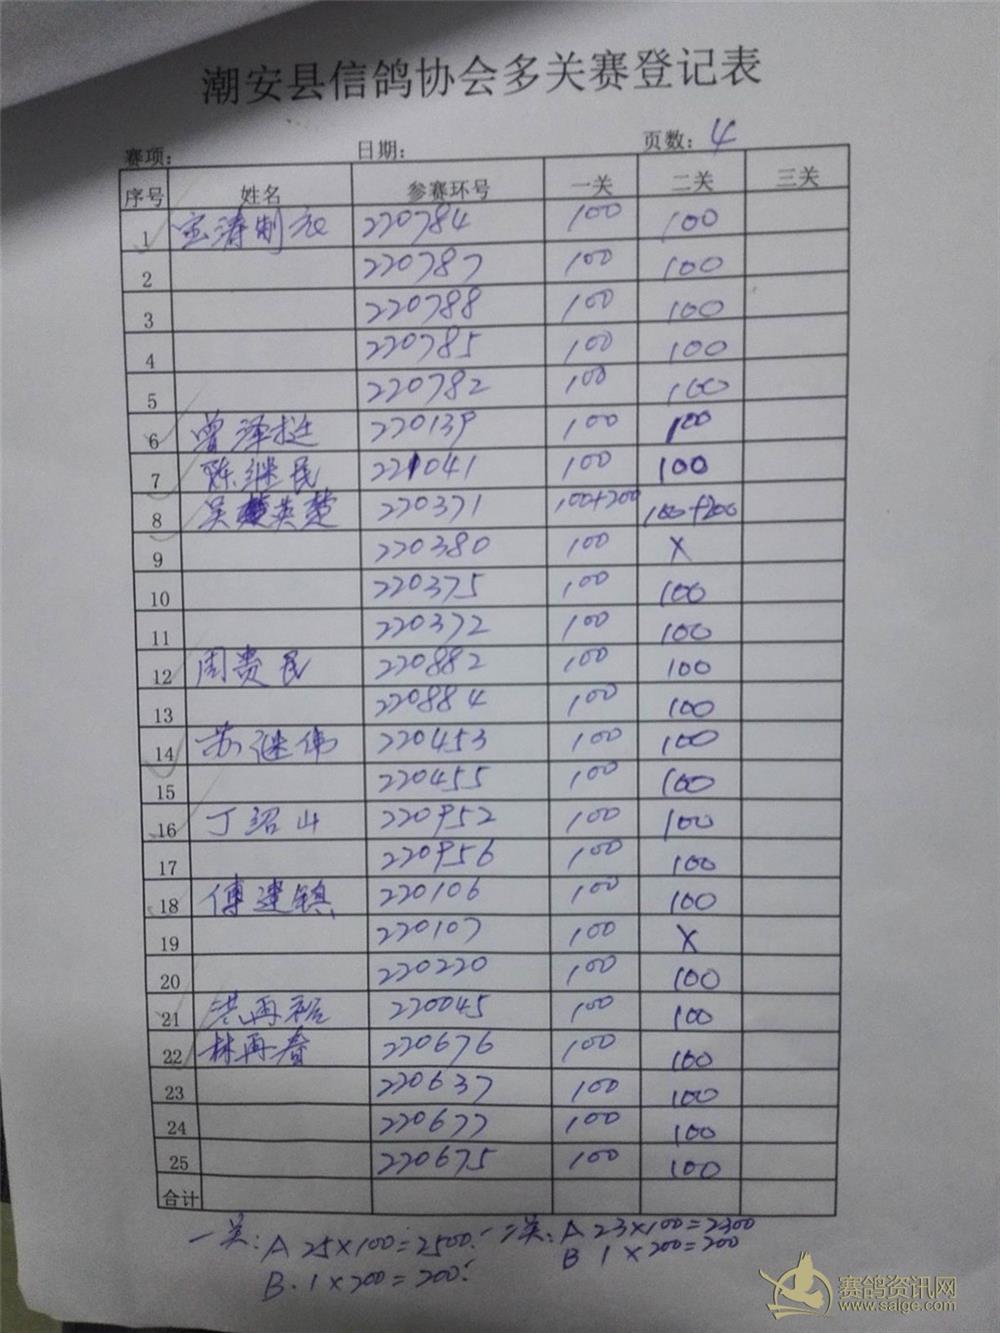 潮安县信鸽协会多关赛登记表
赛项: 日期: 页数: 4
序号 姓名 参赛环号 一关 二关 三关
1 宝涛制衣 220784 100 100
2 220787 100 100
3 220788 100 100
4 220785 100 100
5 220782 100 100
6 曾泽挺 220139 100 100
7 陈继民 221041 100 100
8 吴英楚 220371 100+200 100+200
9 220380 100 X
10 220375 100 100
11 220372 100 100
12 周贵民 220882 100 100
13 220884 100 100
14 苏继伟 220453 100 100
15 220455 100 100
16 丁绍山 220952 100 100
17 220956 100 100
18 傅建镇 220106 100 100
19 220107 100 X
20 220220 100 100
21 洪再裕 220045 100 100
22 林再春 220676 100 100
23 220637 100 100
24 220677 100 100
25 220675 100 100
合计
一关: A 25×100=2500. 二关: A 23×100=2300
B. 1×200=200. B 1×200=200
赛鸽资讯网
www.saige.com